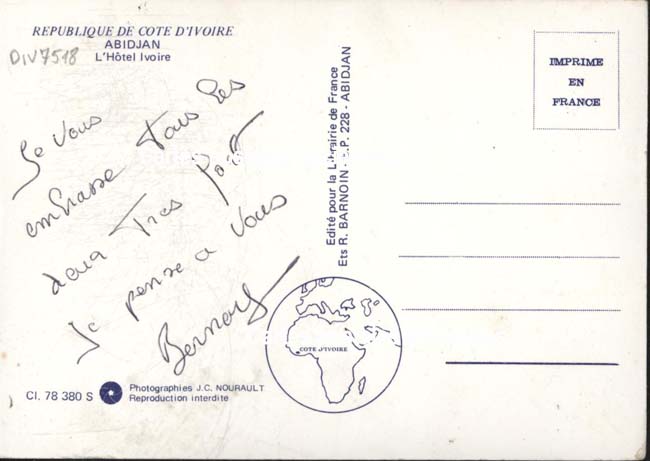 REPUBLIQUE DE COTE D'IVOIRE
ABIDJAN
L'Hôtel Ivoire
DIV7518
Je vous
embrasse Tous les
deux Tres fort
Je pense a Vous
Edité pour la Librairie de France
Ets R. BARNOIN - B.P. 228 - ABIDJAN
IMPRIME
EN
FRANCE
COTE D'IVOIRE
Cl. 78 380 S
Photographies J.C. NOURAULT
Reproduction interdite